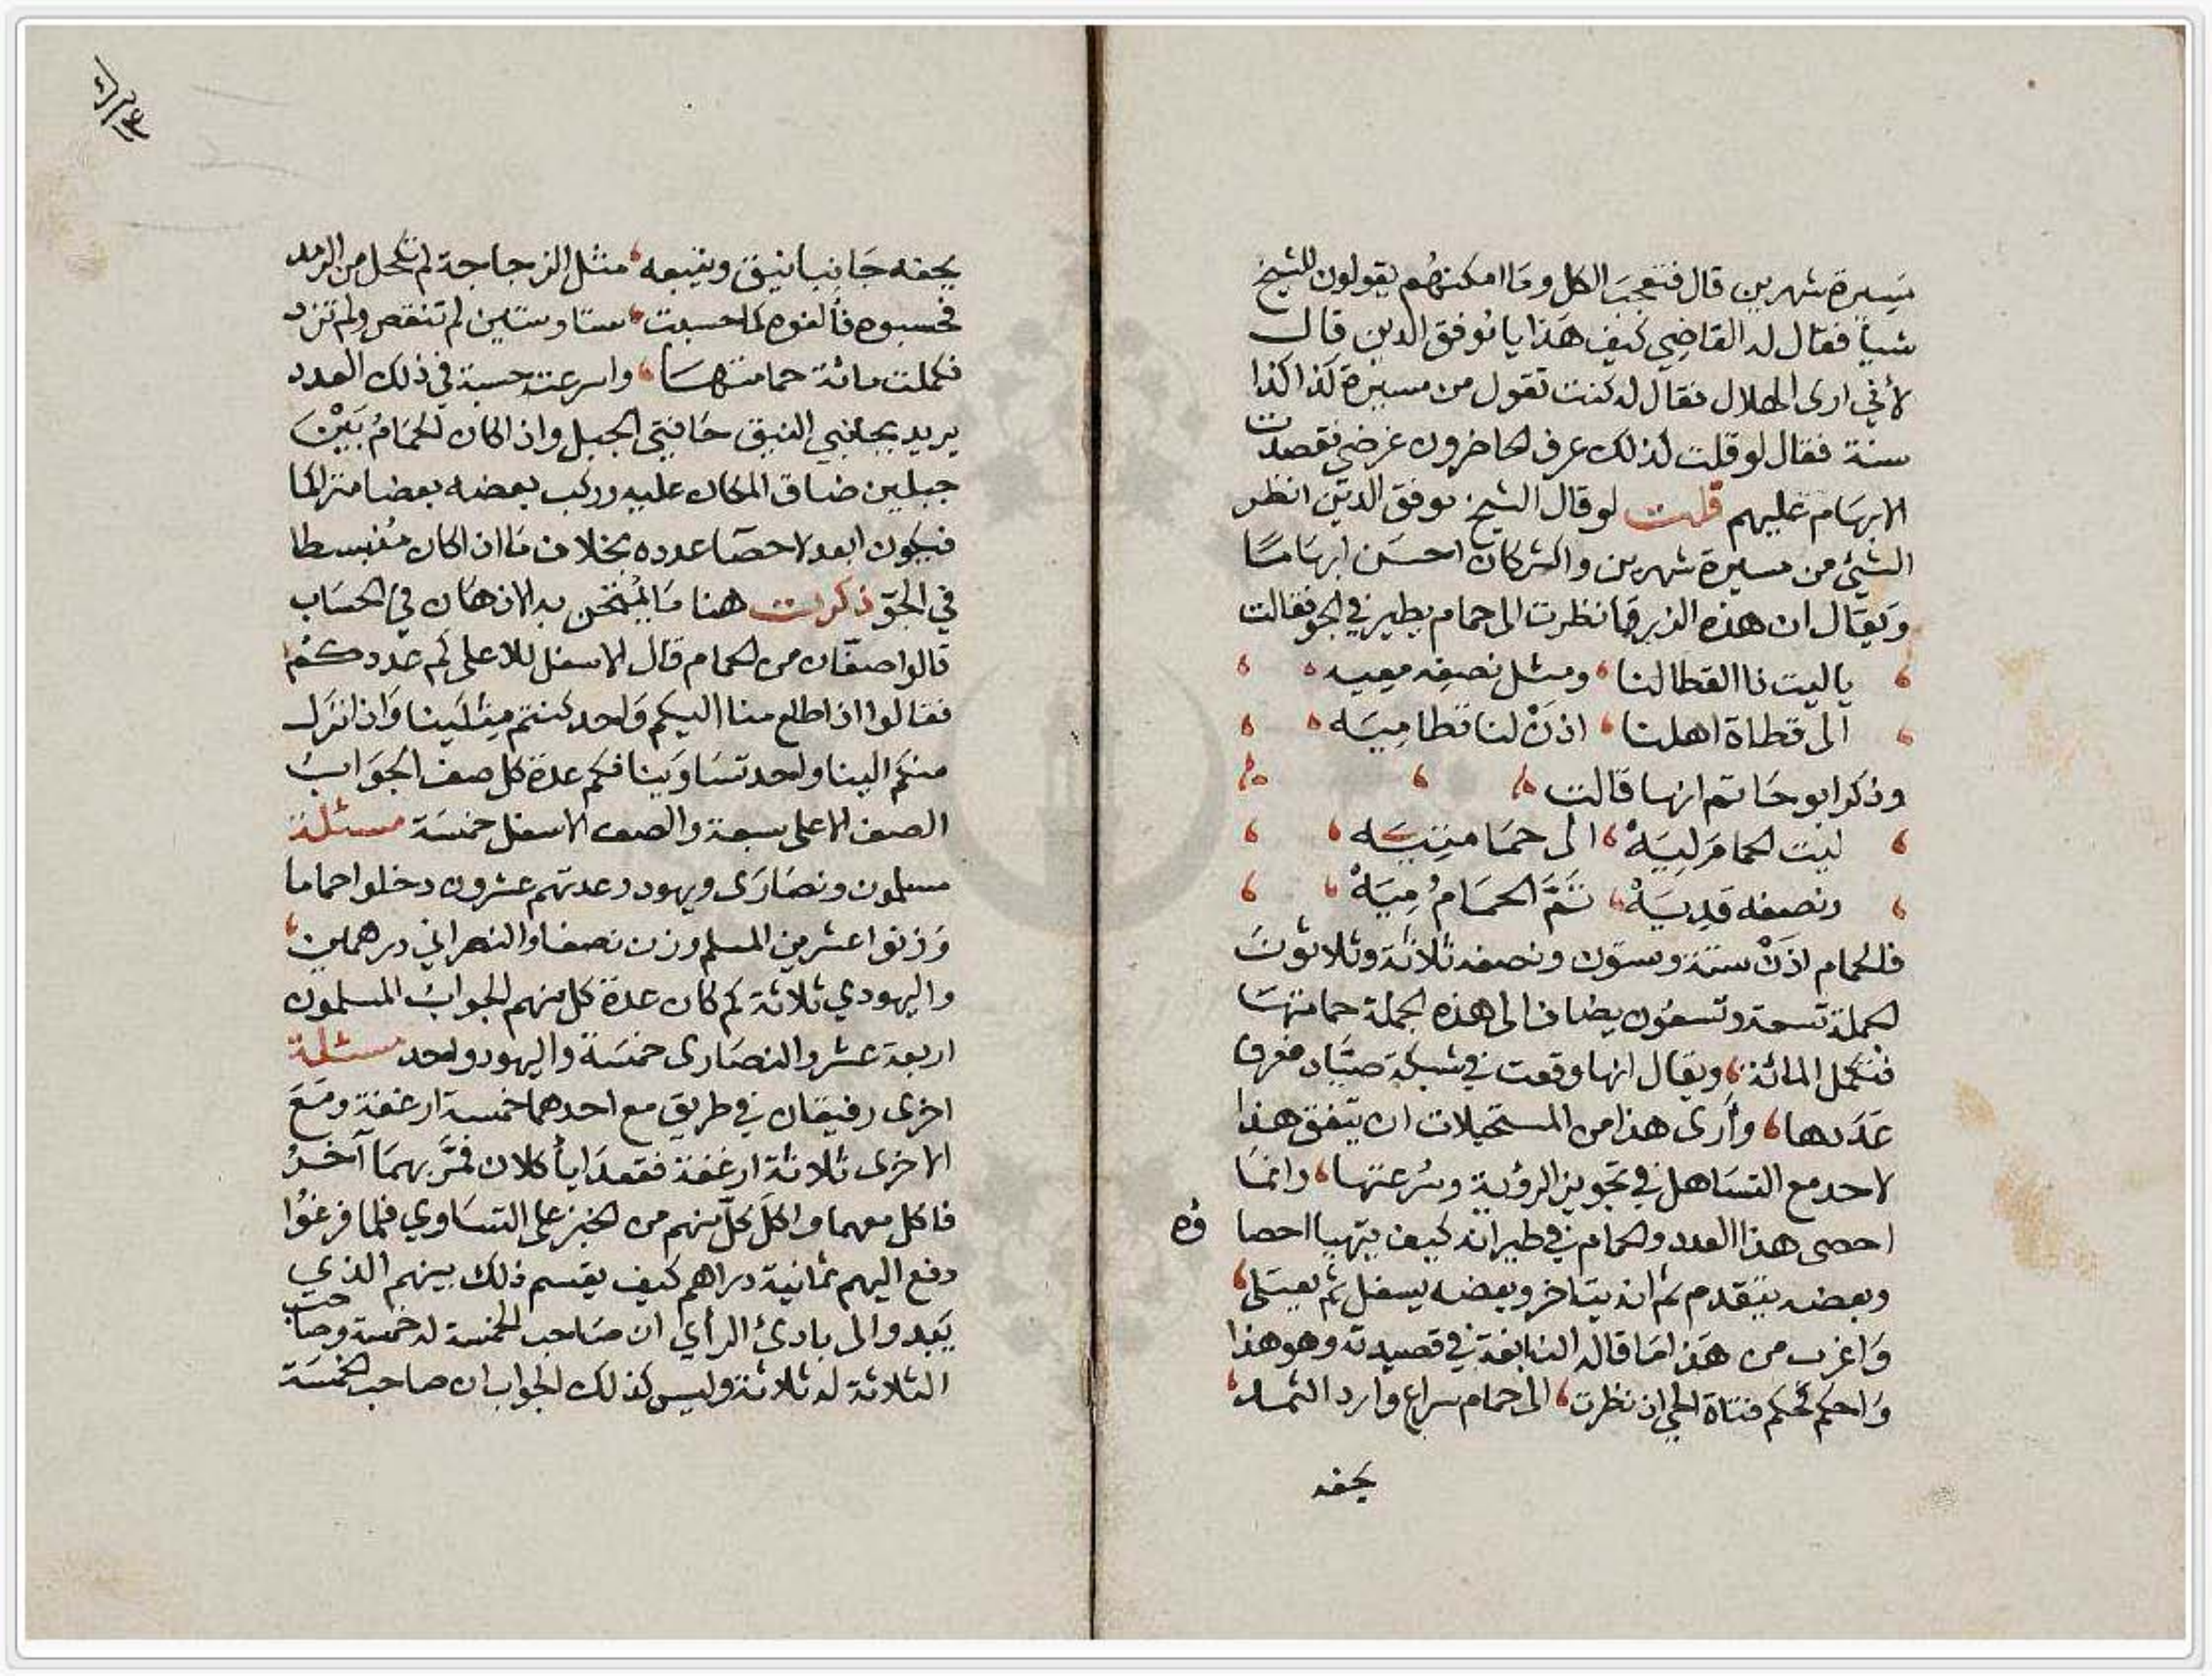 مَسِيرة شهرين قال فتعجبَ الكل ومَا امكنهُم يقولون للشيخ
شيأ فقال له القاضِي كيف هَذا يا موفق الدين قال
لأني ارى الهلال فقال له كنت تقول من مسيرة كذا كذا
سنة فقال لو قلت كذلك عرف الحاضرون غرضي فقصدت
الابهَام عليهم قلت لو قال الشيخ موفق الدين انظر
الشيئ من مسيرة شهرين والشركان احسَن ابهَامًا
وَيقال ان هذه الزبرقا نظرت الى حمام يطير في الجو فقالت
يا ليت ذا القطا لنا ومثل نصفِه معِيه
الى قطاة اهلنا اذَنْ لنا قطا مِيَه
وذكر ابو حَاتم انها قالت
ليت الحمامَ لِيَهْ الى حمَامتِيَه
ونصفه قدِيَهْ تَمَّ الحمَامُ مِيَهْ
فالحمام اذَنْ ستة وستون ونصفه ثلاثة وثلاثونَ
الجملة تسعة وتسعُون يضاف الى هذه الجملة حمامتهَا
فتكمل المائة ويقال انها وقعت في شبكة صيَّاد فعرف
عَدَدها وأرى هذا من المستحيلات ان يتفق هذا
لاحد مع التسَاهل في تجويز الرؤية وسُرعتها وانمَا
احصى هذا العدد والحمام في طيرانه كيف يتهيا احصاؤه
وبعضه يتقدم ثم انه يتاخر وبعضه يسفل ثم يعتلى
وَاغرب من هَذا مَا قاله النابغة في قصيدته وهو هذا
وَاحكم كحكم فتاة الحي اذ نظرت الى حمام سراع وارد الثمد
يحفه
يحفه جَانِبا نيق وتتبعه مثل الزجاجة لم تكحل من الرمد
فحسبوه فألفوه كما حسبت ستا وستين لم تنقص ولم تزد
فكملت مائة حمامتهَا واسرعت حسبة في ذلك العدد
يريد بجانبي النيق حَافتي الجبل واذا كان الحَمَامُ بَيْنَ
جبلين ضاق المكان عليه وركب بعضه بعضا متراكما
فيكون ابعد لاحصَا عدده بخلاف مَا اذا كان مُنبسطا
في الجوّ ذكرت هنا مَا يُمتحن به الاذهَان في الحسَاب
قالوا صفّان من الحمام قال الاسفل للاعلى كم عددكُمْ
فقالوا اذا طلع منا اليكم وَاحد كنتم مِثلَينا وَاذا نزَل
منكم الينا واحد تسَاوَينا فكم عدة كل صف الجوَابُ
الصف الاعلى سبعة والصف الاسفل خمسَة مسئلة
مسلمون ونصَارَى ويهود وعدتهم عشرون دخلوا حماما
وَزنوا عشرين المسلم وزن نصفا والنصراني درهمين
واليهودي ثلاثة كم كان عدة كل منهم الجوابُ المسلمون
اربعة عشر والنصَارى خمسَة واليهود واحد مسئلة
اخرى رفيقان في طريق مع احدهما خمسة ارغفة ومَعَ
الاخرى ثلاثة ارغفة فقعدَا يأكلان فمَّر بهمَا آخرُ
فاكل معهما واكلَ كلّ منهم من الخبز على التسَاوي فلما فرغوُا
دفع اليهم ثمانية دراهم كيف يقسم ذلك بينهم الذي
يَبدو الى بادئ الرأي ان صَاحب الخمسة له خمسة وصَاحب
الثلاثة له ثلاثة وليس كذلك الجواب ان صاحب الخمسَة